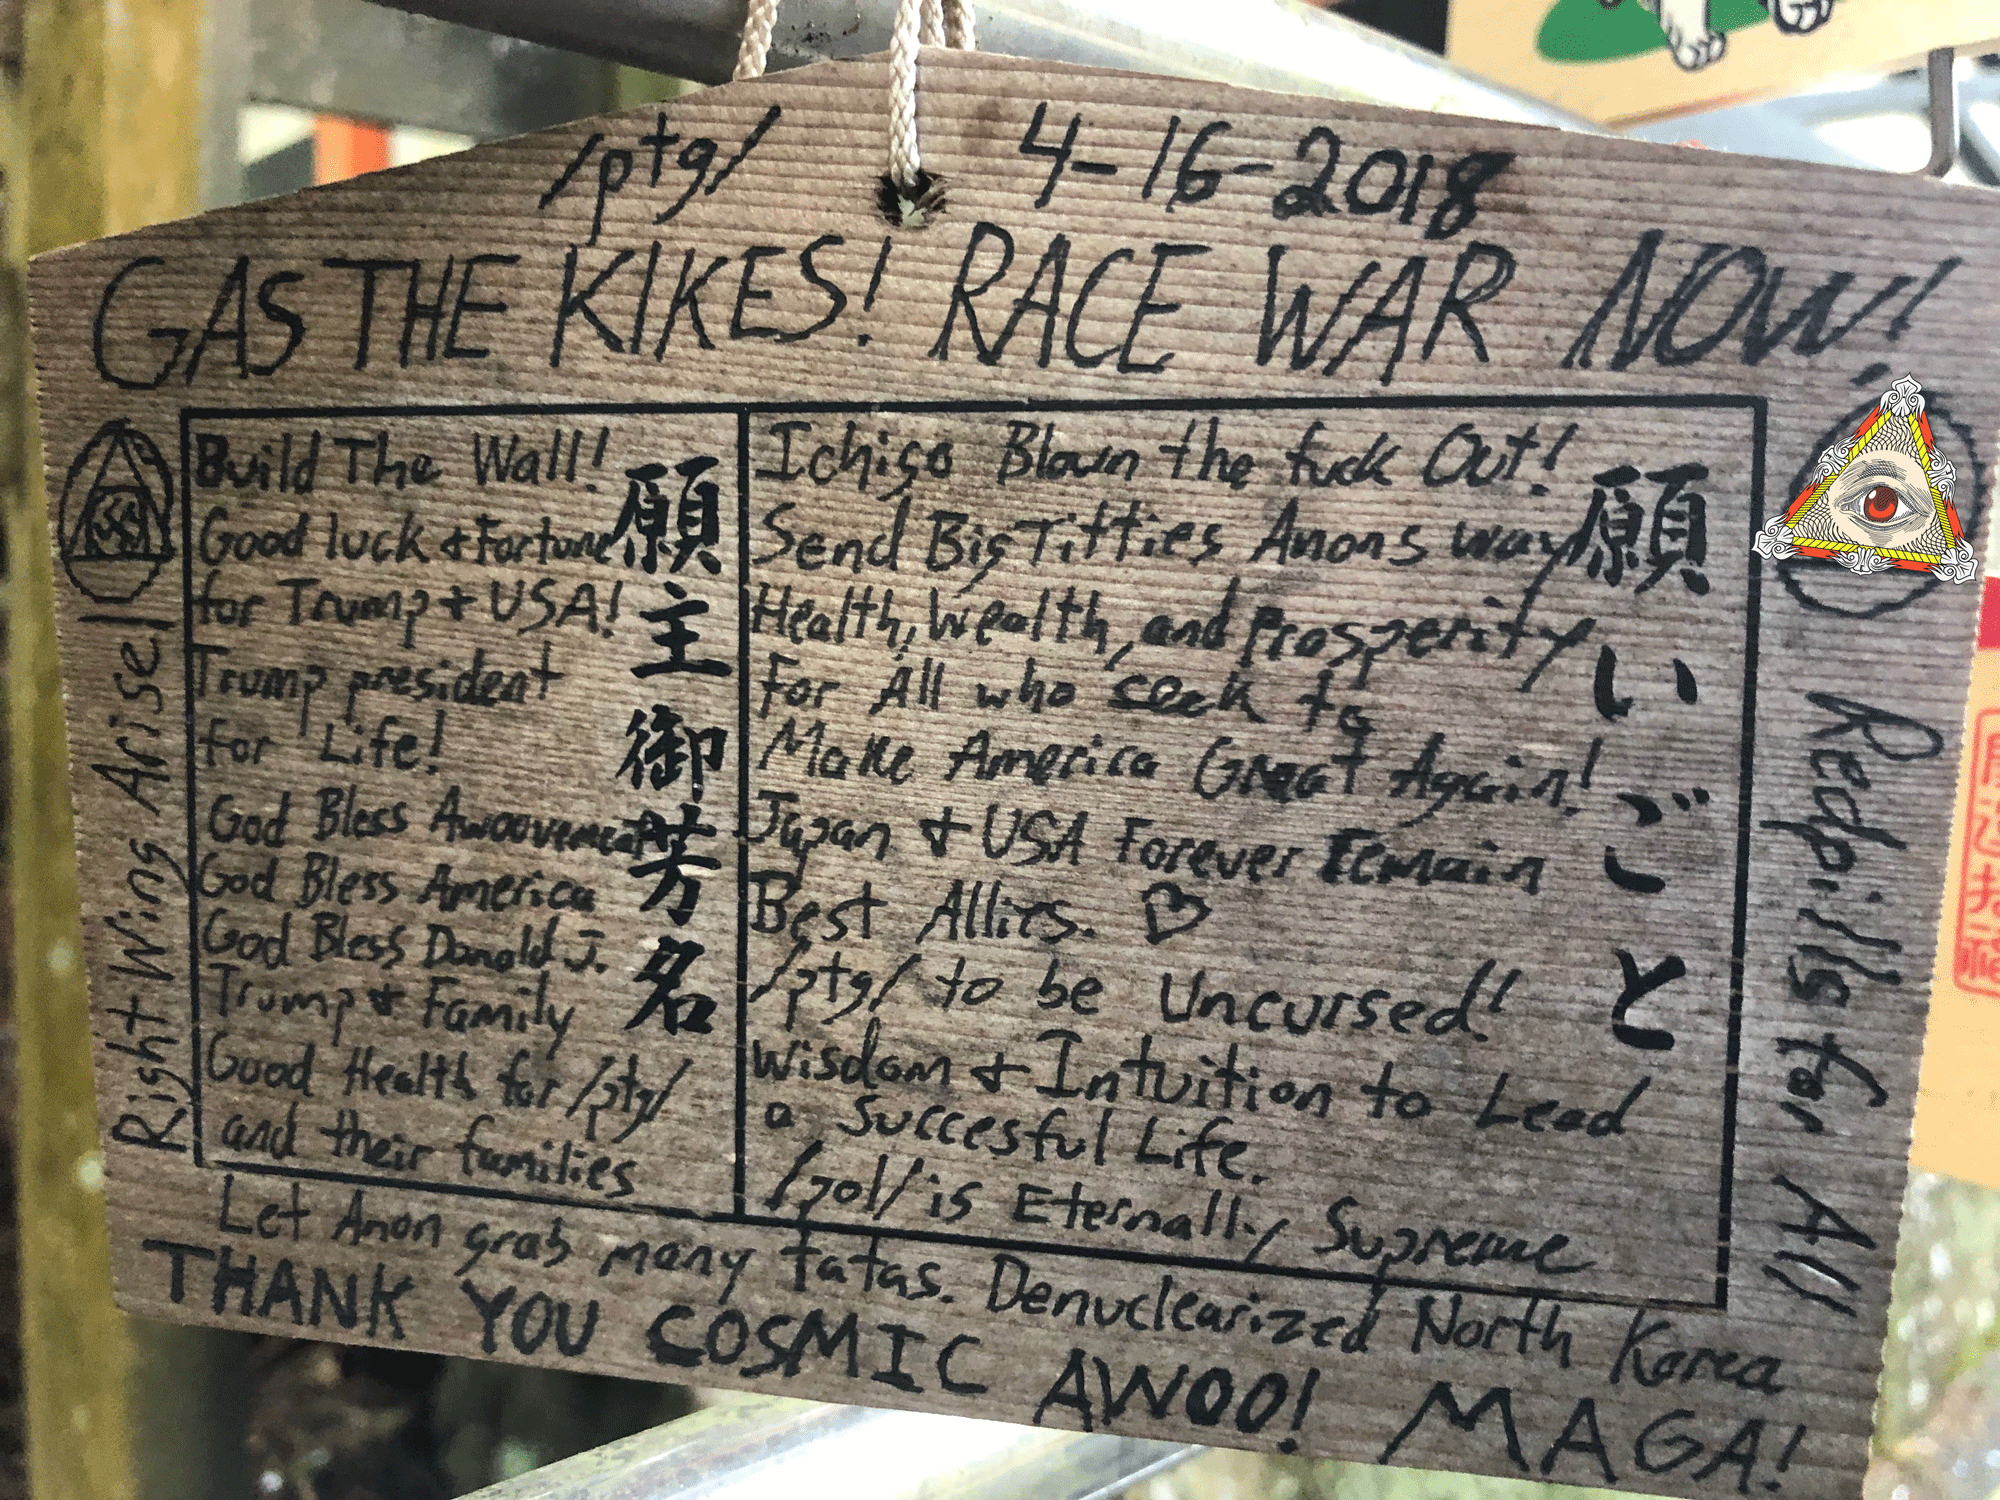 /ptg/ 4-16-2018
GAS THE KIKES! RACE WAR NOW!
Build The Wall!
Good luck & Fortune
for Trump & USA!
Trump president
for Life!
God Bless Awoovement
God Bless America
God Bless Donald J.
Trump & Family
Good Health for /ptg/
and their families
願主御芳名
Ichigo Blown the fuck Out!
Send Big Titties Anons way
Health, Wealth, and Prosperity
For All who seek to
Make America Great Again!
Japan & USA Forever Remain
Best Allies. ♡
/ptg/ to be Uncursed!
Wisdom & Intuition to Lead
a Succesful Life.
/pol/ is Eternally Supreme
願いごと
Right Wing Arise!
Redpills for All
Let Anon grab many tatas. Denuclearized North Korea
THANK YOU COSMIC AWOO! MAGA!